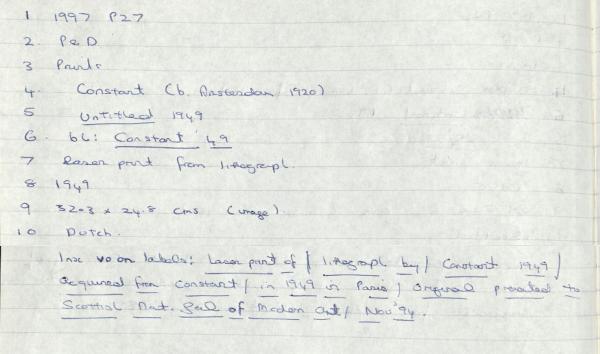 1 1997 P27
2. P&D
3 Prints
4. Constant (b. Amsterdam 1920)
5 Untitled 1949
6. bl: Constant '49
7 Laser print from lithograph.
8 1949
9 32.3 x 24.8 cms (image)
10 Dutch.
Insc vo on labels: Laser print of / lithograph by / Constant 1949 /
acquired from Constant / in 1949 in Paris / Original presented to
Scottish Nat. Gall of Modern Art / Nov '94.